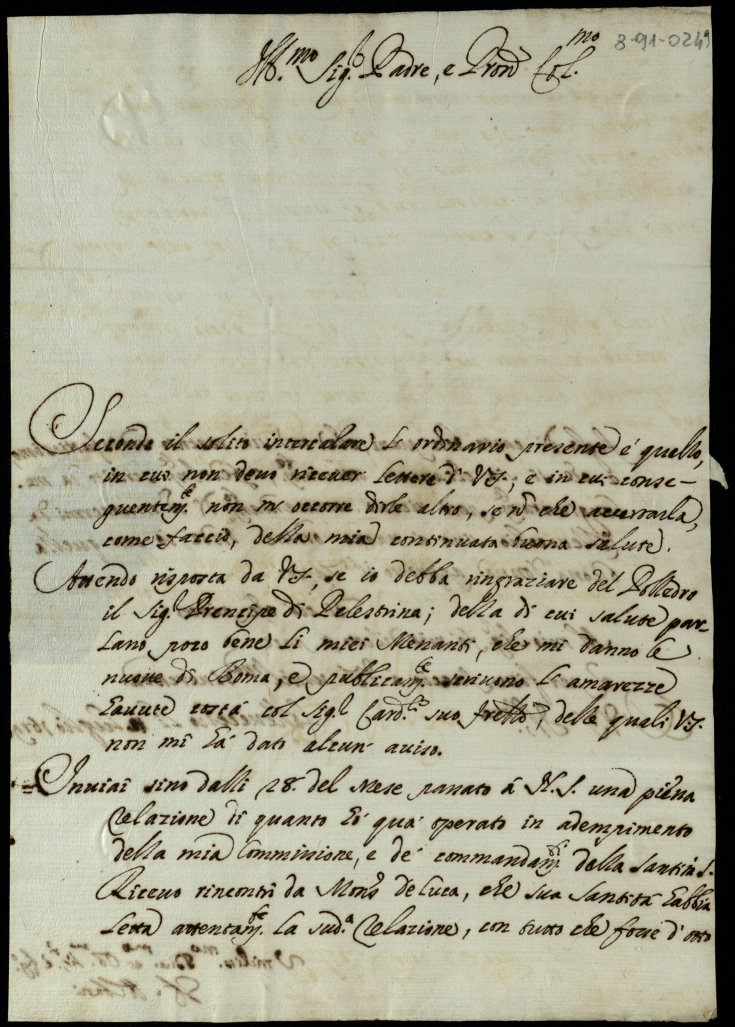 8-91-0249
Ill.mo Sig.r Padre, e Pron Col.mo
Secondo il solito intercalare l'ordinario presente é quello,
in cui non devo riceuer lettere di VS., e in cui conse-
guentem.te non m'occorre dirle altro, se nõ che accertarla,
come faccio, della mia continuata buona salute.
Attendo risposta da VS, se io debba ringraziare del Polledro
il Sig.r Prencipe di Pelestrina; della di cui salute par-
lano poco bene li miei Menanti, che mi danno le
nuoue di Roma, e publicam.te scriuono le amarezze
hauute costá col Sig.r Card.le suo frello, delle quali VS.
non mi há dato alcun' auiso.
Inuiai sino dalli 28. del Mese passato á N. S. una piena
relazione di quanto hó quá operato in adempimento
della mia Commissione, e de' commandam.ti della Santitá S.
Riceuo rincontri da Mons. de Luca, che sua Santitá habbia
letta attentam.te la sud.a relazione, con tutto che fosse d'otto